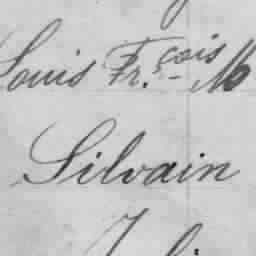 Louis Fr.çois M
Silvain